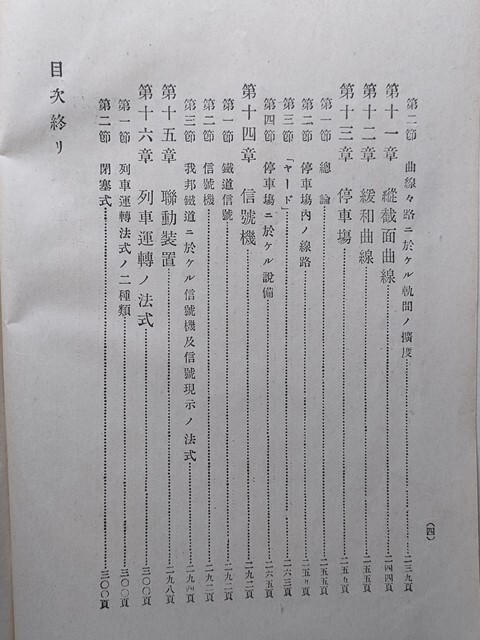 第二節 曲線々路ニ於ケル軌間ノ擴度………二三九頁
第十一章 縱截面曲線………二四四頁
第十二章 緩和曲線………二五五頁
第十三章 停車場………二五五頁
第一節 總論………二五五頁
第二節 停車場內ノ線路………二五九頁
第三節 「ヤード」………二六三頁
第四節 停車場ニ於ケル設備………二六五頁
第十四章 信號機………二九二頁
第一節 鐵道信號………二九二頁
第二節 信號機………二九二頁
第三節 我邦鐵道ニ於ケル信號機及信號現示ノ法式………二九四頁
第十五章 聯動裝置………二九八頁
第十六章 列車運轉ノ法式………三〇〇頁
第一節 列車運轉法式ノ二種類………三〇〇頁
第二節 閉塞式………三〇〇頁
目次終リ
(四)